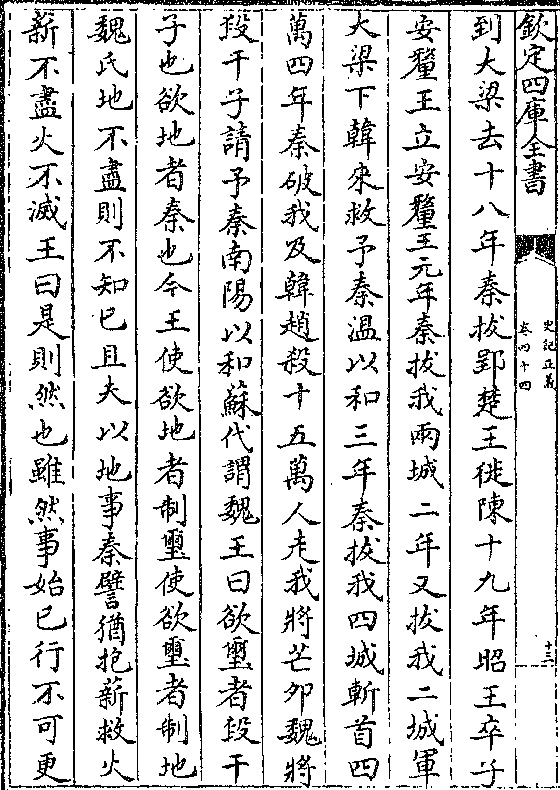 欽定四庫全書
史記正義
卷四十四
十三
到大梁去十八年秦拔郢楚王徙陳十九年昭王卒子
安釐王立安釐王元年秦拔我兩城二年又拔我二城軍
大梁下韓來救予秦溫以和三年秦拔我四城斬首四
萬四年秦破我及韓趙殺十五萬人走我將芒卯魏將
段干子請予秦南陽以和蘇代謂魏王曰欲璽者段干
子也欲地者秦也今王使欲地者制璽使欲璽者制地
魏氏地不盡則不知已且夫以地事秦譬猶抱薪救火
薪不盡火不滅王曰是則然也雖然事始已行不可更